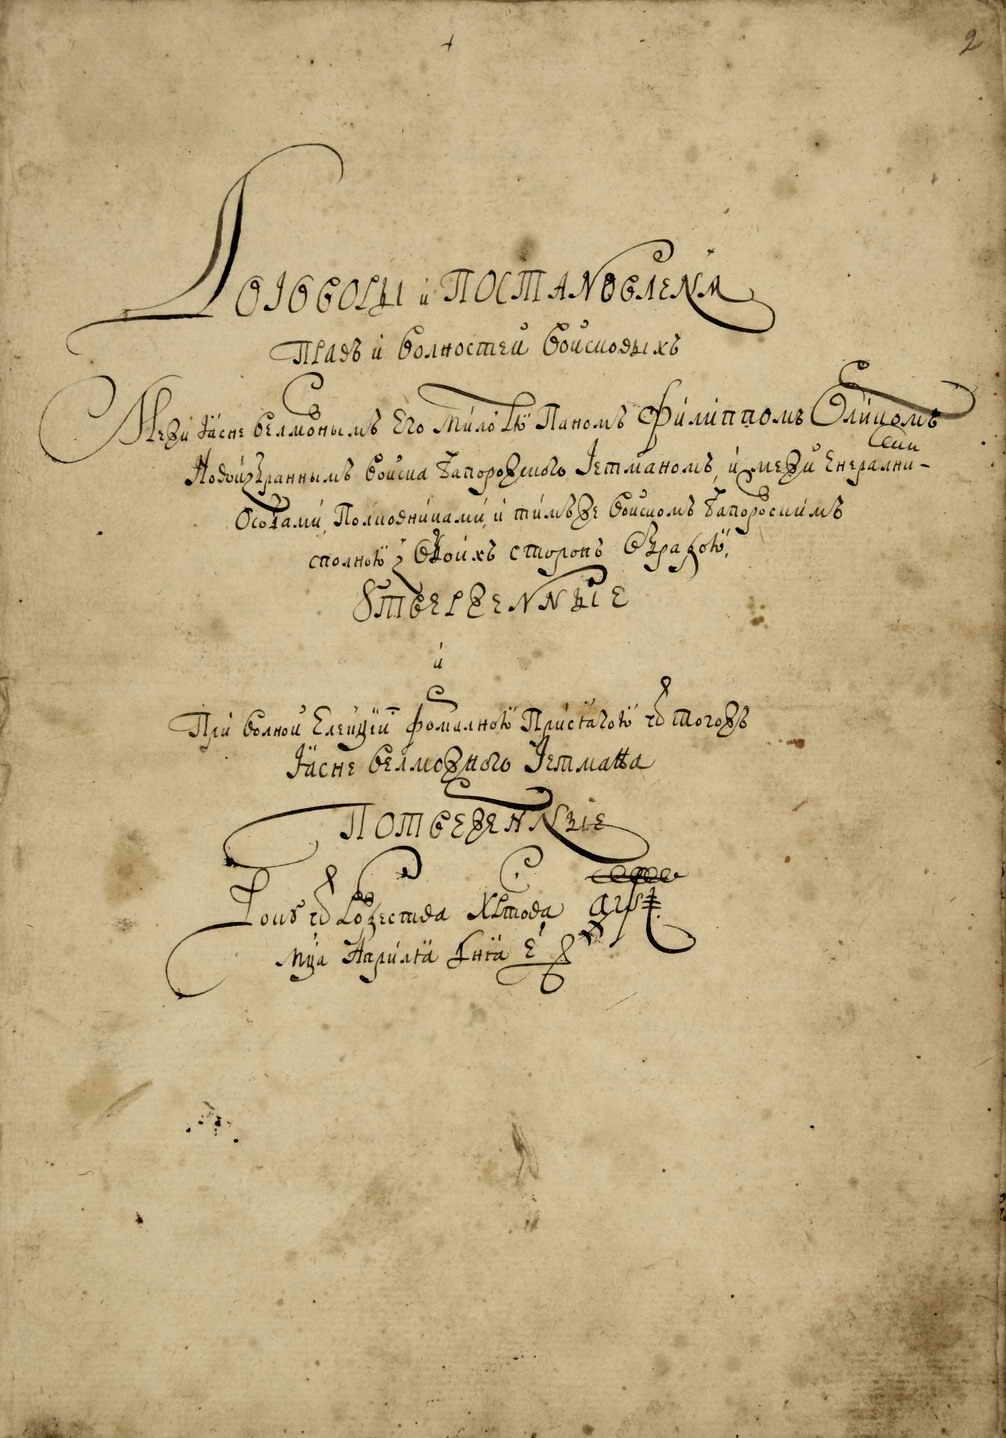 2
Договоры и Постановленѧ
Правъ и волностей войсковыхъ
Межи Ясне велможнымъ Его милостю Паномъ Филиппомъ Орликомъ
Новоизбраннымъ войска Запорожского Гетманомъ, и межи Енералними
Особами, Полковниками, и тимъже войскомъ Запорожскимъ
сполною з обоихъ сторонъ обрадою,
Утверженные
и
При волной Елекцiи формалною Присягою ѿ тогожъ
Ясне велможного Гетмана
Потверженные
Року ѿ Рожества Христова
мця Априля дня е҃